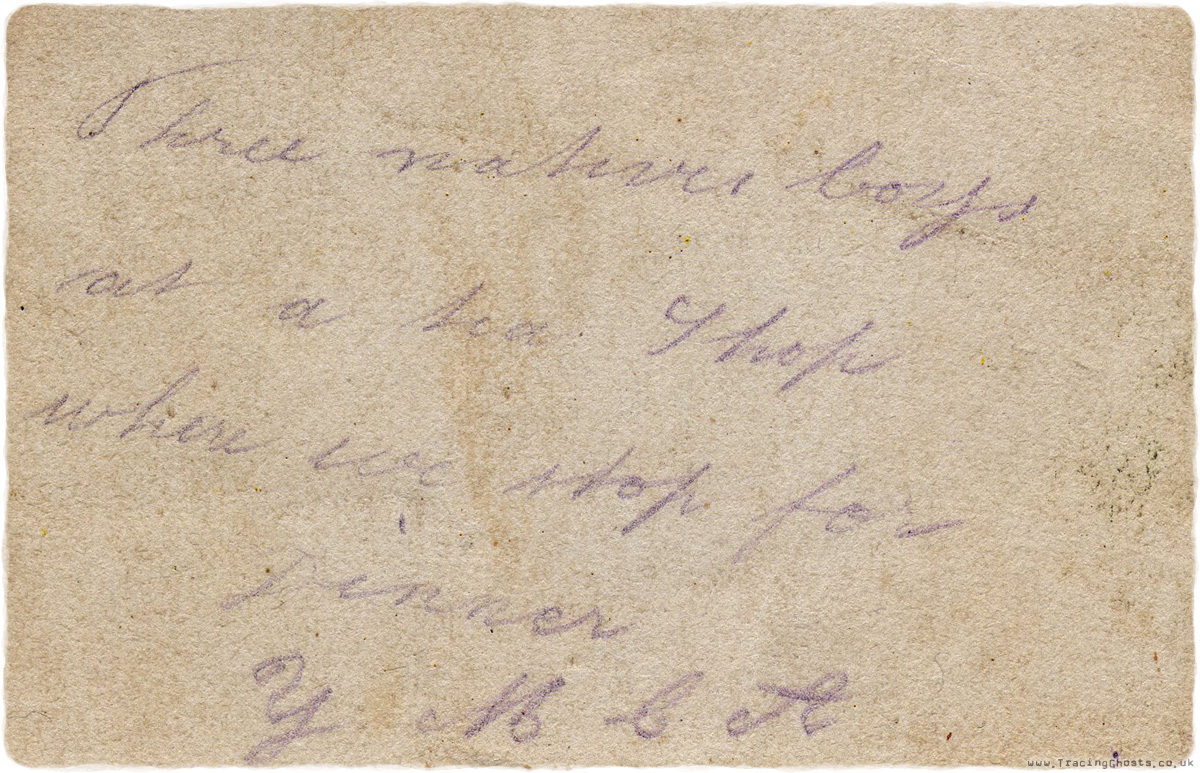 Three natives boys
at a tea Shop
where we stop for
Dinner
Y M C A
www.TracingGhosts.co.uk